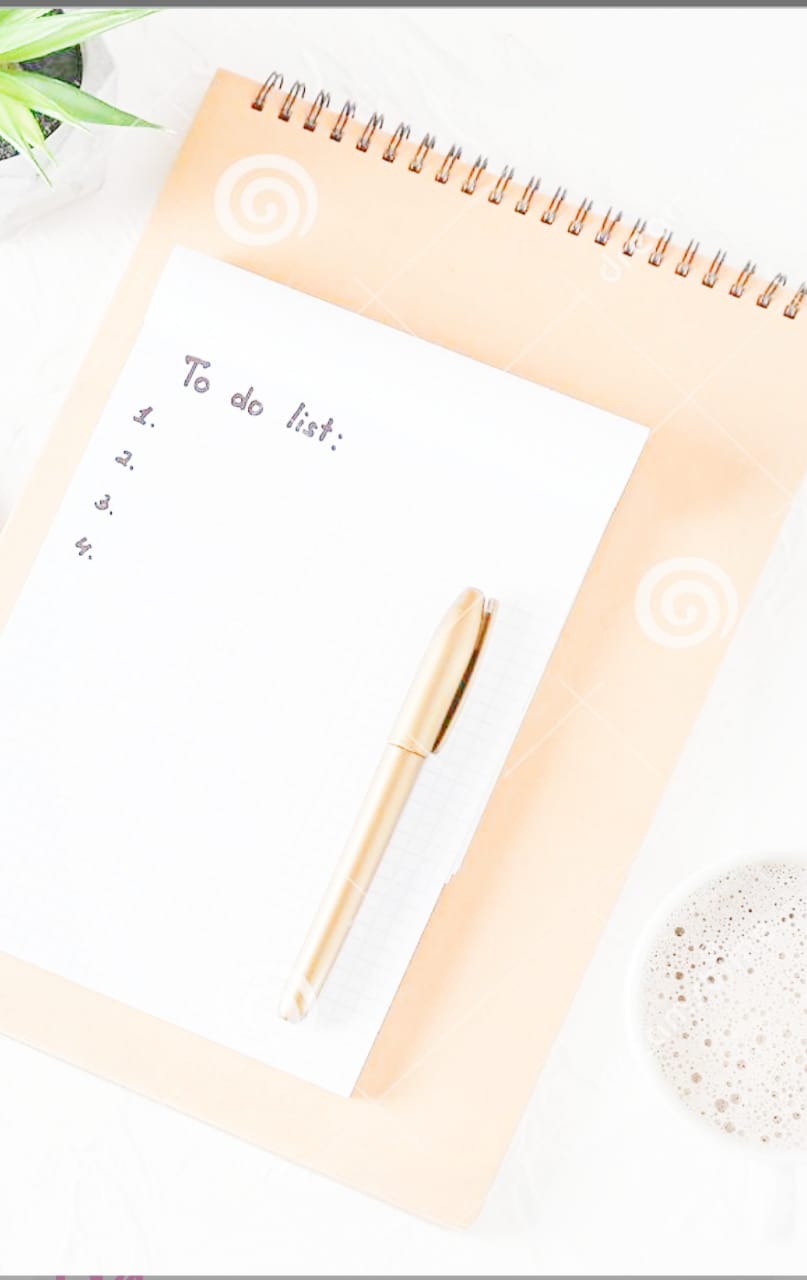 To do list:
1.
2.
3.
4.